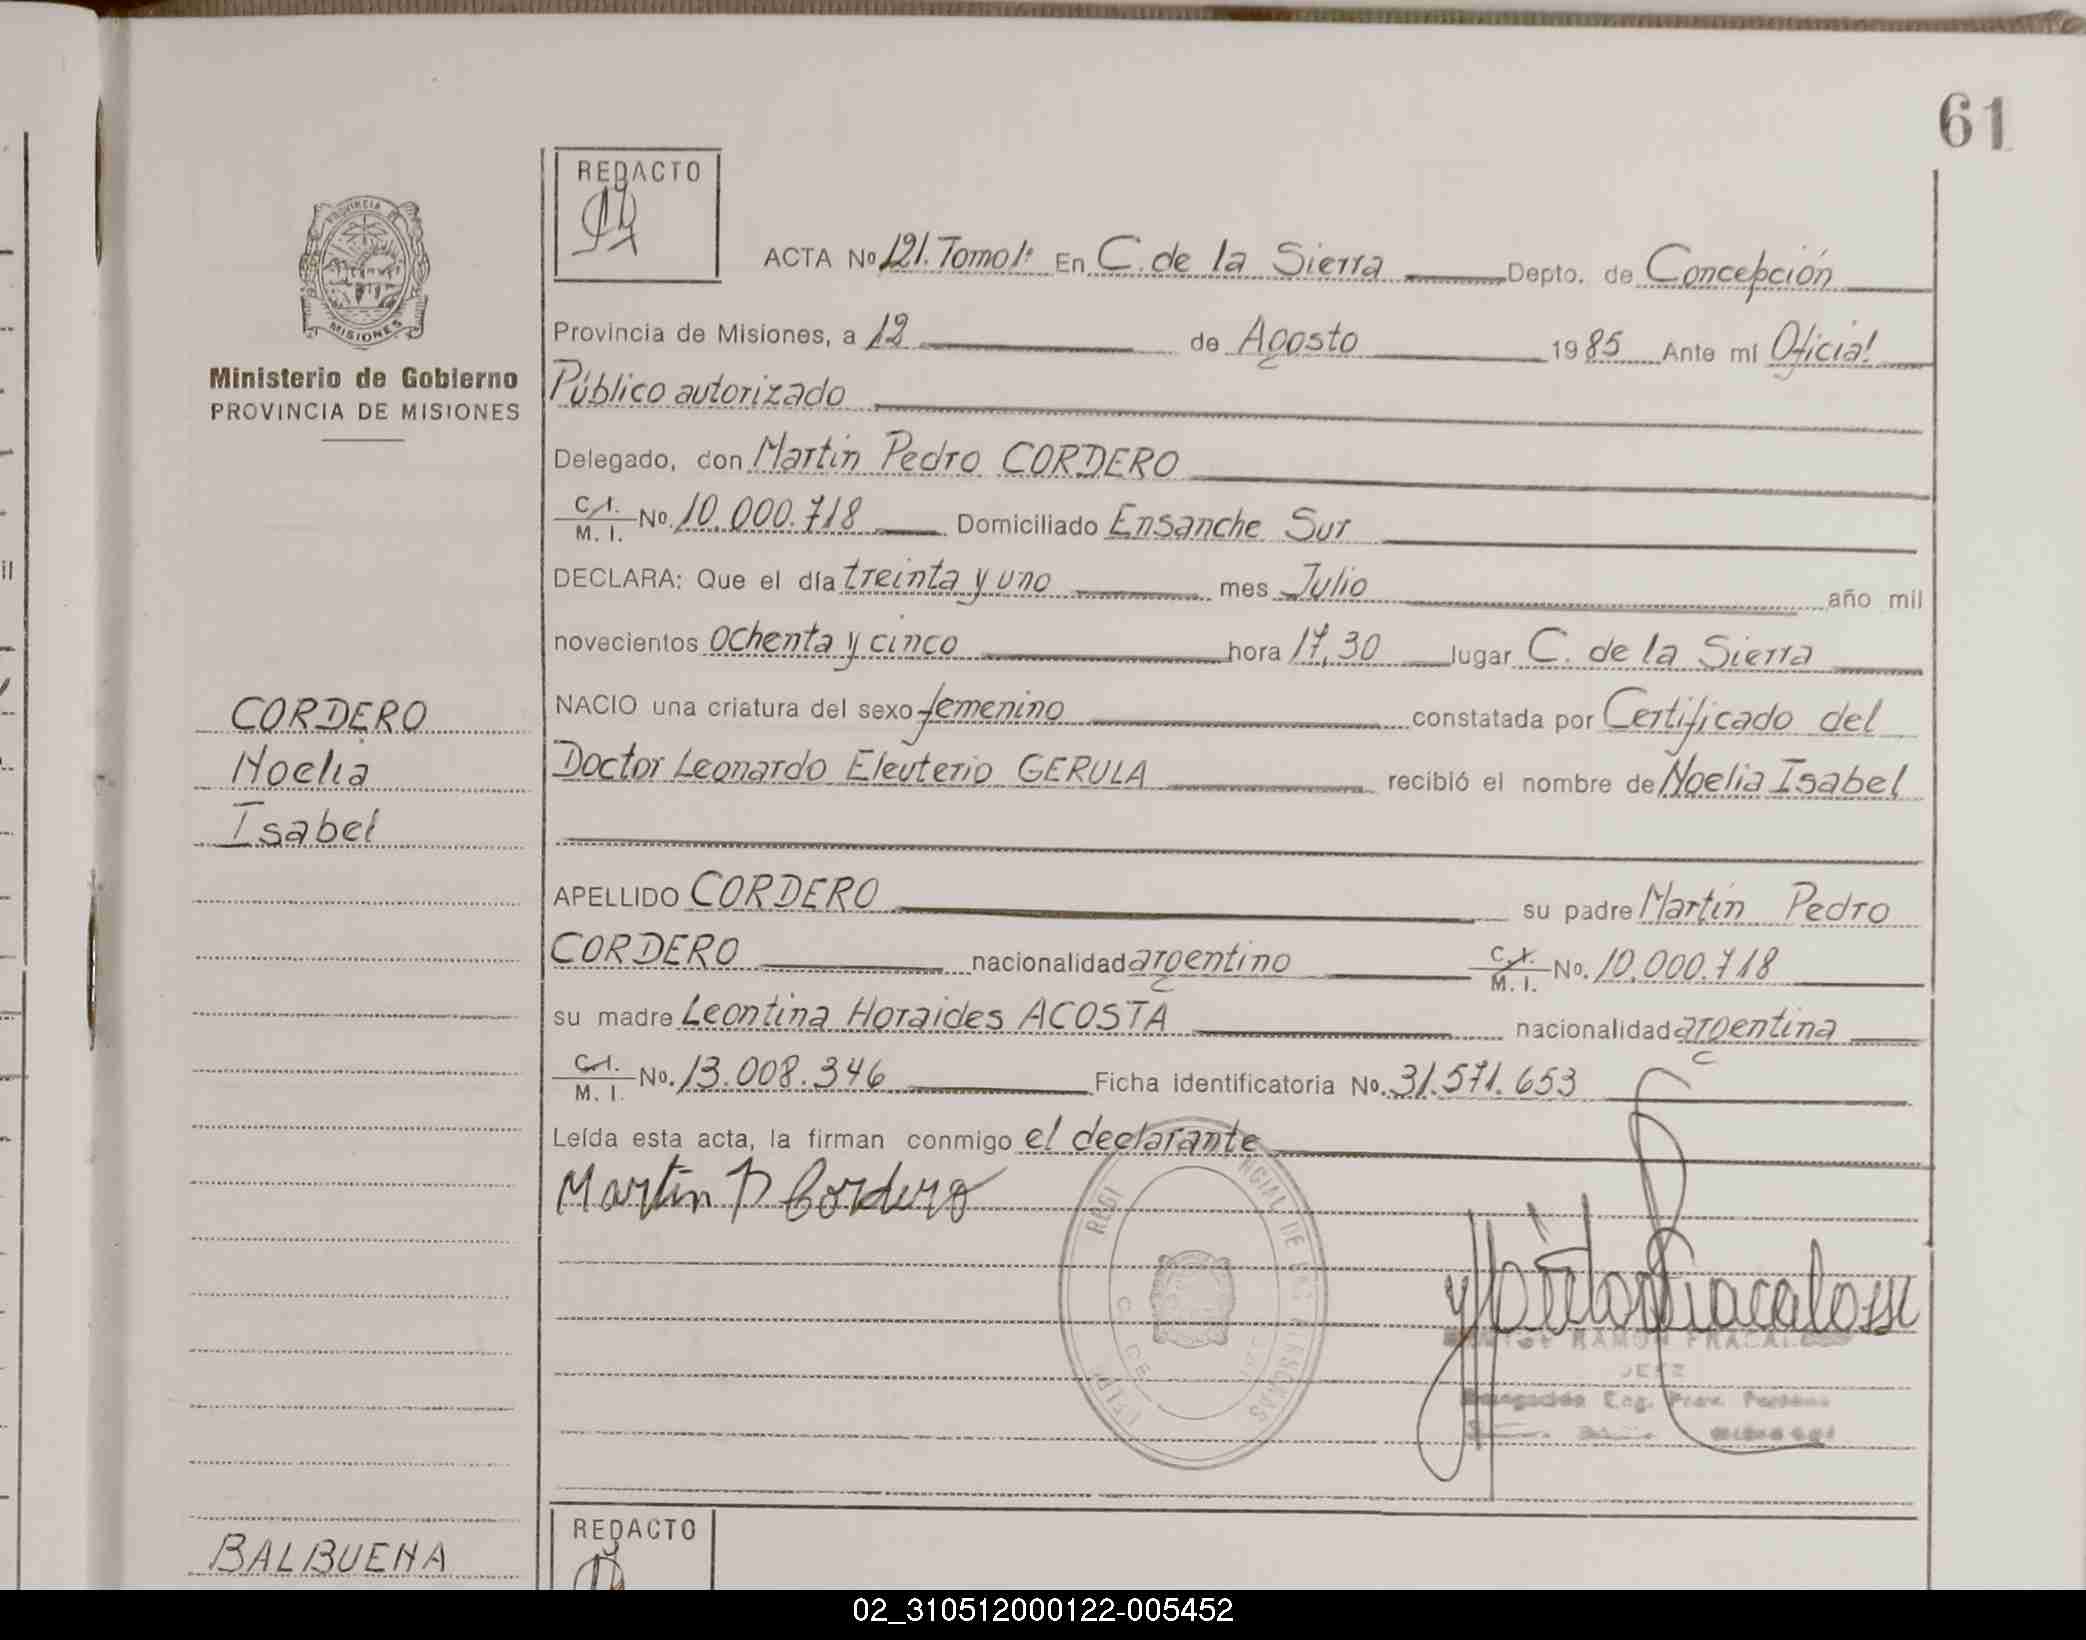 61
REDACTO
PROVINCIA DE
MISIONES
Ministerio de Gobierno
PROVINCIA DE MISIONES
ACTA Nº 121. Tomo 1º En C. de la Sierra Depto. de Concepción
Provincia de Misiones, a 12 de Agosto 1985 Ante mí Oficial
Público autorizado
Delegado, don Martin Pedro CORDERO
C. I. M. I. Nº. 10.000.718 Domiciliado Ensanche Sur
DECLARA: Que el día treinta y uno mes Julio año mil
novecientos ochenta y cinco hora 17,30 lugar C. de la Sierra
NACIO una criatura del sexo femenino constatada por Certificado del
Doctor Leonardo Eleuterio GERULA recibió el nombre de Noelia Isabel
CORDERO
Noelia
Isabel
APELLIDO CORDERO su padre Martin Pedro
CORDERO nacionalidad argentino C. I. M. I. Nº. 10.000.718
su madre Leontina Horaides ACOSTA nacionalidad argentina
C. I. M. I. Nº. 13.008.346 Ficha identificatoria Nº. 31.571.653
Leída esta acta, la firman conmigo el declarante
Martin P Cordero
REGI NCIAL DE LAS PERSONAS
RAMON
JEFE
Delegación Prov. Personas
REDACTO
BALBUENA
02_310512000122-005452